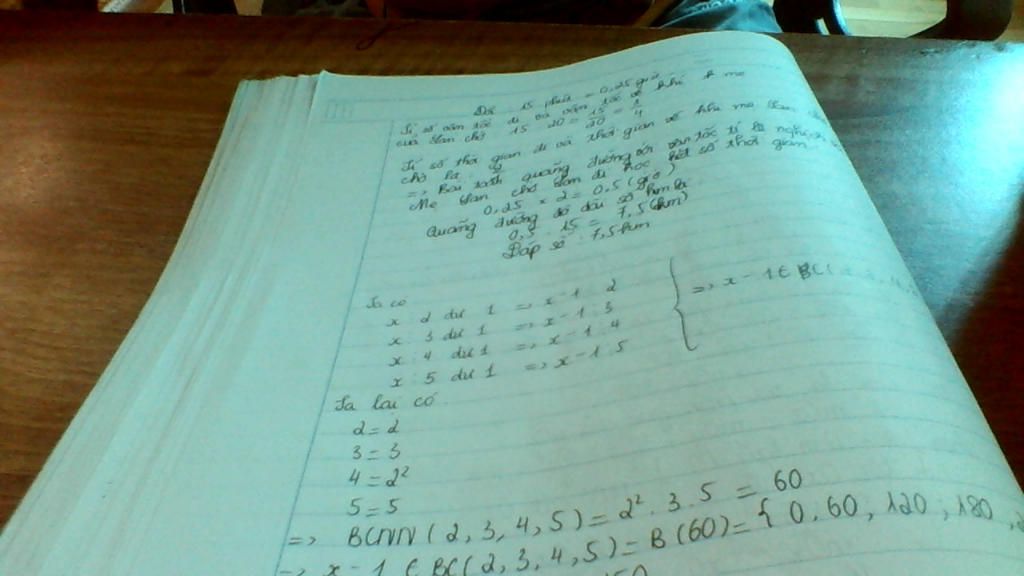 Đổi 15 phút = 0,25 giờ
Tỉ số vận tốc đi và vận tốc về khi mẹ
của Lan chở 15 : 20 = 15/20 = 3/4
Tỉ số thời gian đi và thời gian về khi mẹ Lan
chở là
=> Bài toán quãng đường với vận tốc tỉ lệ nghịch
Mẹ Lan chở Lan đi học hết số thời gian
0,25 × 2 = 0,5 (giờ)
Quãng đường đó dài số km là
0,5 . 15 = 7,5 (km)
Đáp số : 7,5 km
Ta có
x : 2 dư 1 => x - 1 : 2
x : 3 dư 1 => x - 1 : 3
x : 4 dư 1 => x - 1 : 4
x : 5 dư 1 => x - 1 : 5
=> x - 1 ∈ BC (2,
Ta lại có
2 = 2
3 = 3
4 = 2²
5 = 5
=> BCNN (2, 3, 4, 5) = 2² . 3 . 5 = 60
=> x - 1 ∈ BC (2, 3, 4, 5) = B (60) = { 0, 60, 120, 180,